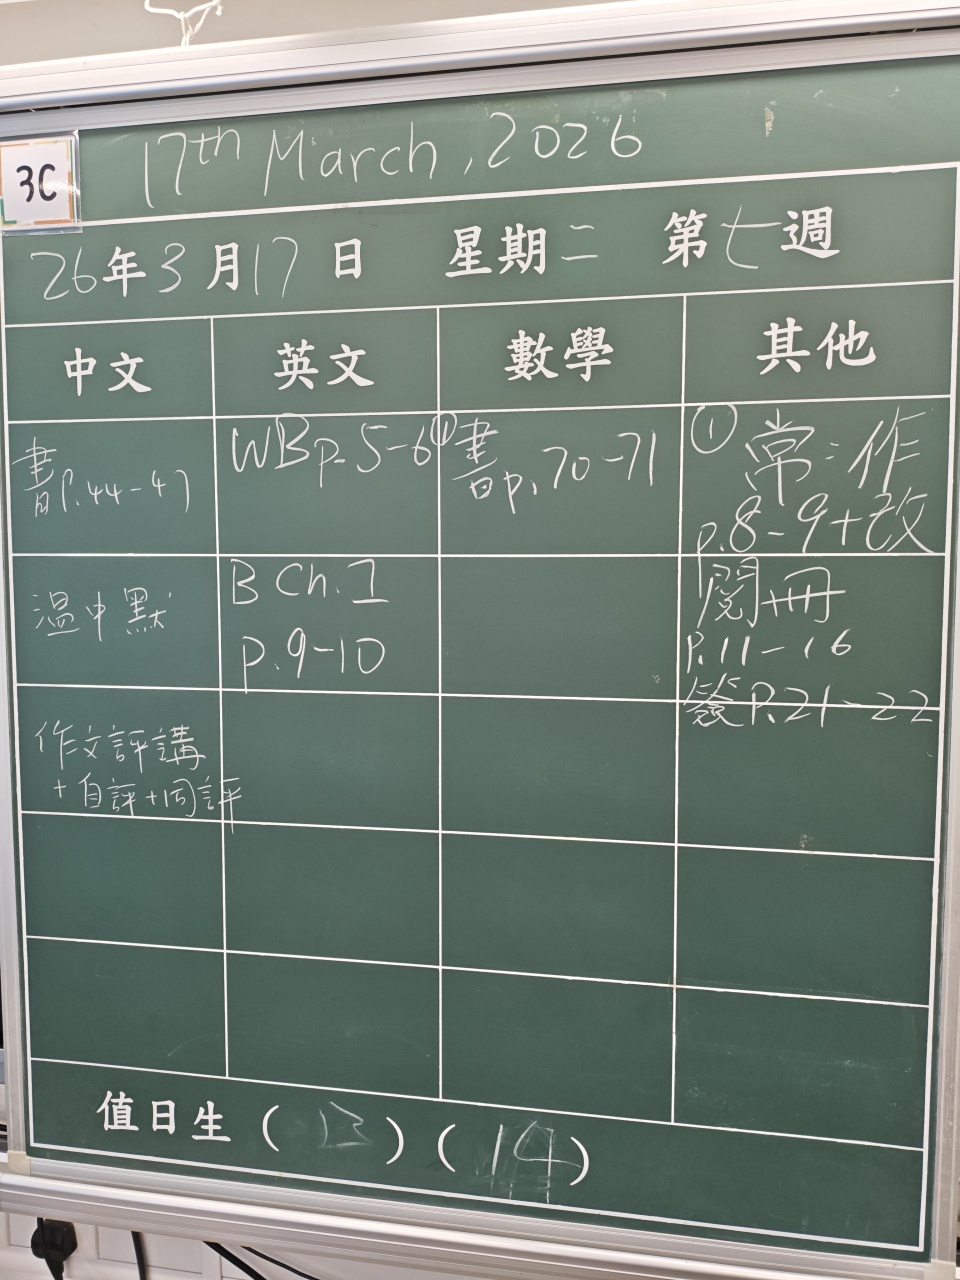 17th March, 2026
3C
26年3月17日 星期二 第七週
中文 英文 數學 其他
書P.44-47
WB p.5-6
① 書p.70-71
① 常:作
p.8-9+改
溫中默
B Ch.1
p.9-10
閱冊
P.11-16
簽P.21-22
作文評講
+自評+同評
值日生( 13 )( 14 )